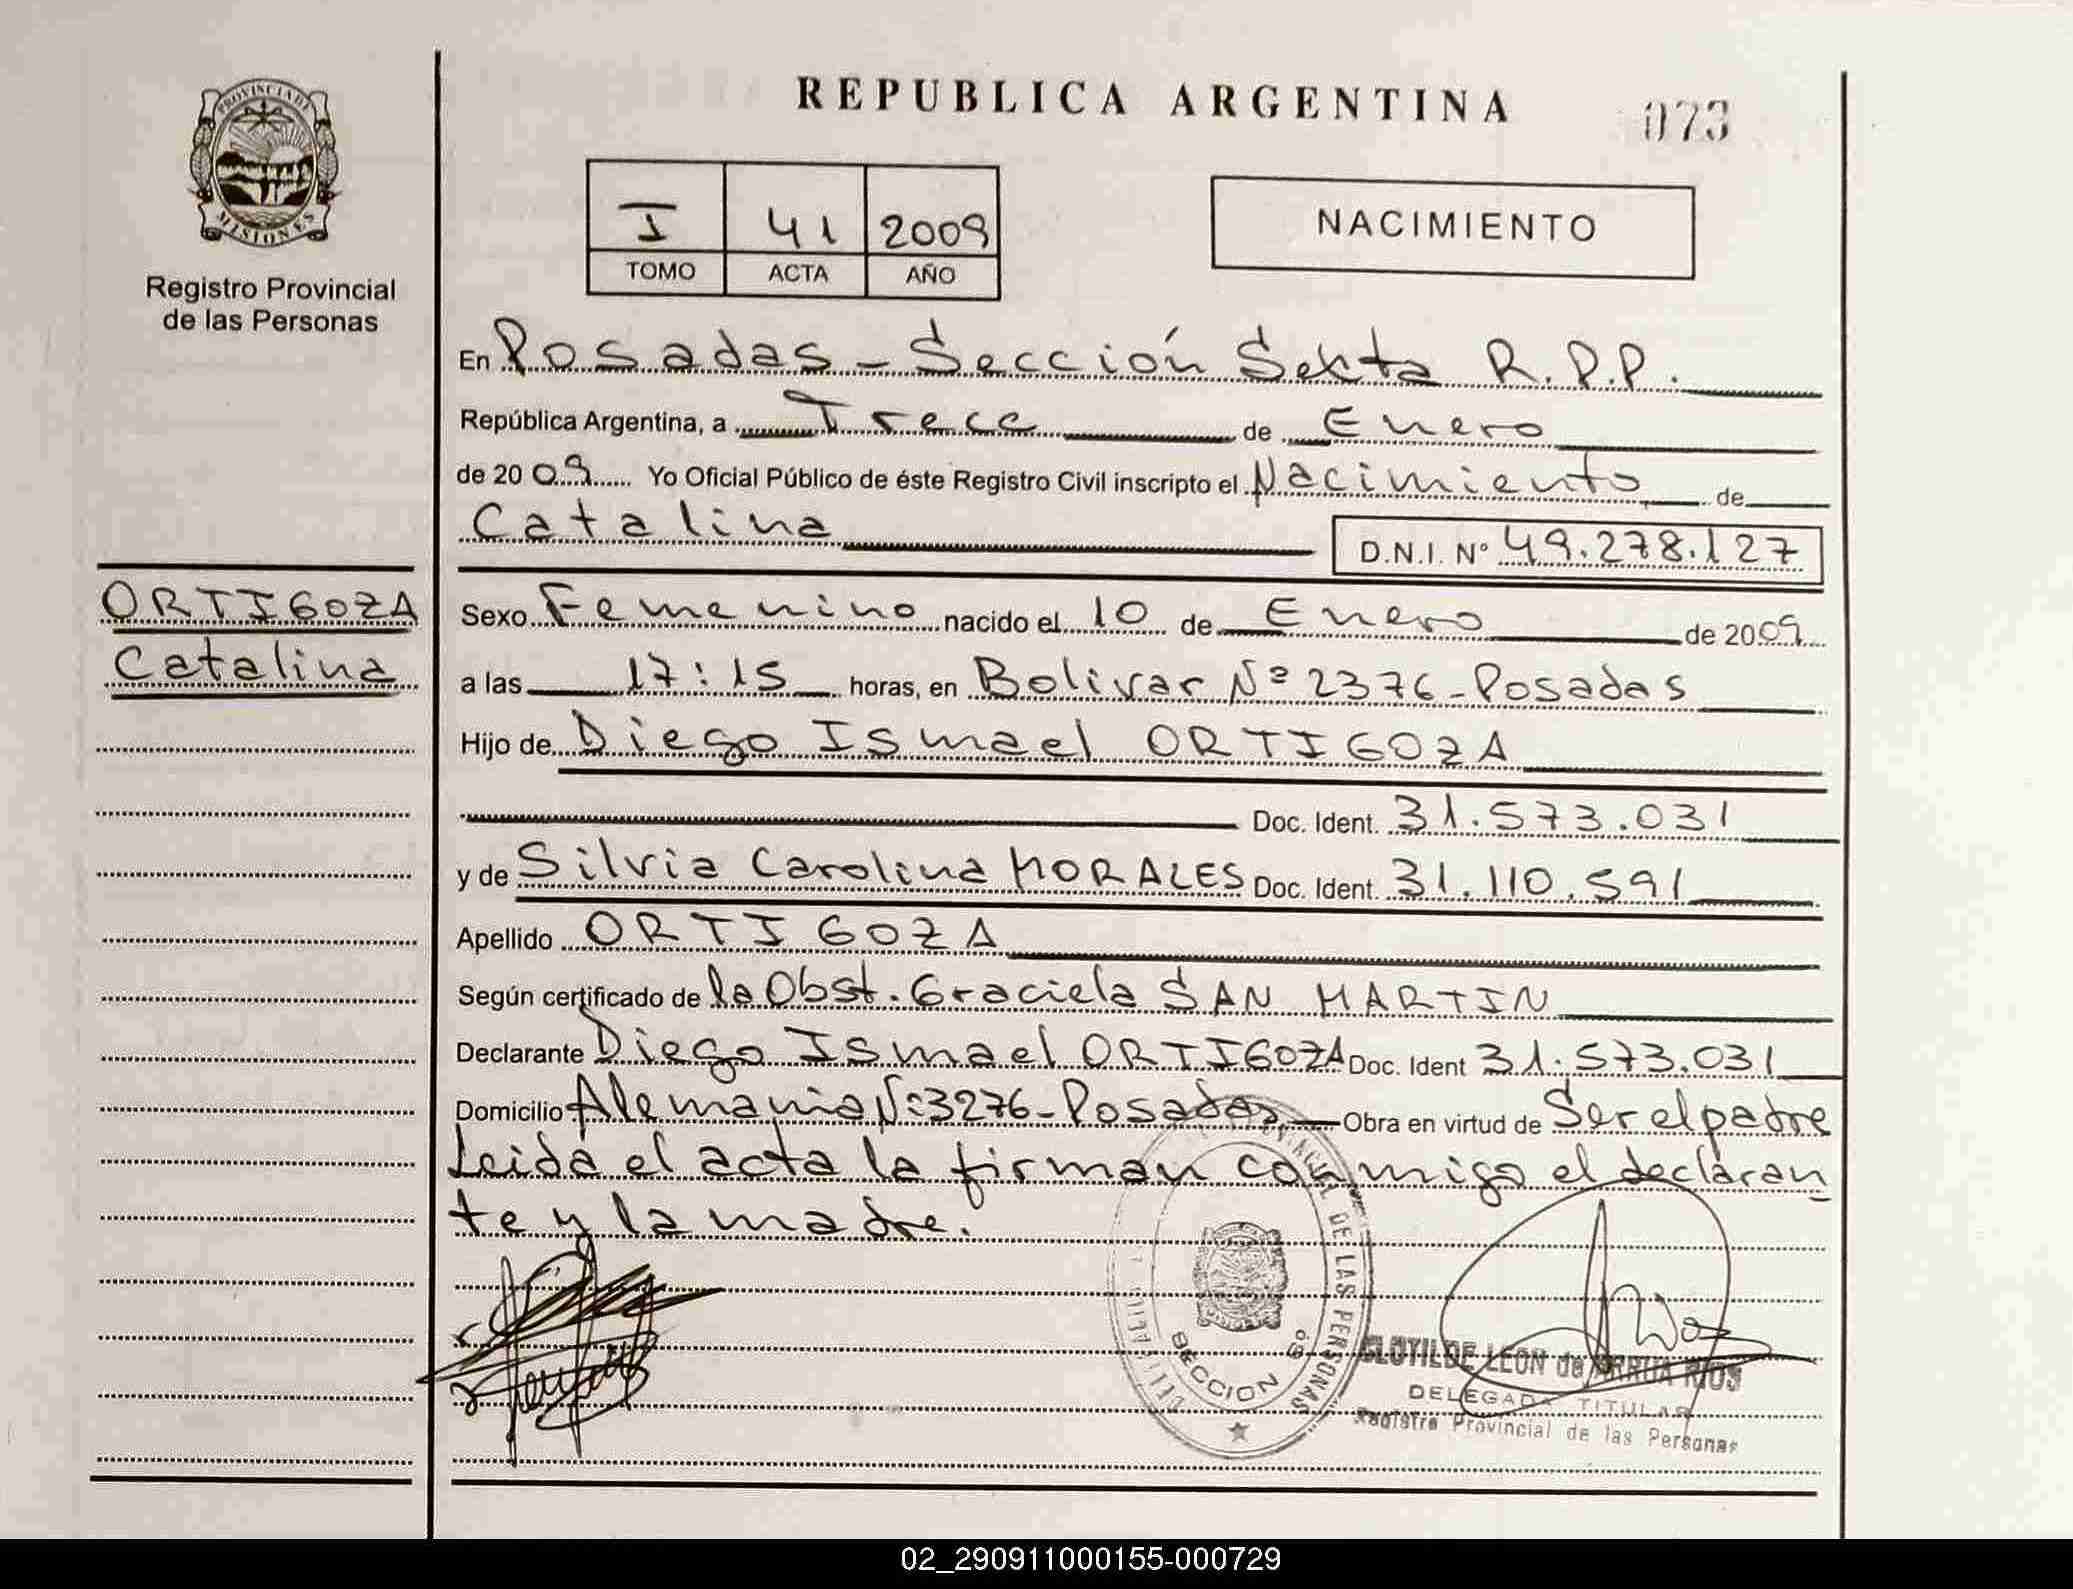 REPUBLICA ARGENTINA
073
PROVINCIA DE
MISIONES
Registro Provincial
de las Personas
I 41 2009
TOMO ACTA AÑO
NACIMIENTO
En Posadas - Sección Sexta R.P.P.
República Argentina, a Trece de Enero
de 20 09 Yo Oficial Público de éste Registro Civil inscripto el Nacimiento de
Catalina D.N.I. Nº 49.278.127
ORTIGOZA
Catalina
Sexo Femenino nacido el 10 de Enero de 2009
a las 17:15 horas, en Bolivar Nº 2376-Posadas
Hijo de Diego Ismael ORTIGOZA
Doc. Ident. 31.573.031
y de Silvia Carolina MORALES Doc. Ident. 31.110.591
Apellido ORTIGOZA
Según certificado de la Obst. Graciela SAN MARTIN
Declarante Diego Ismael ORTIGOZA Doc. Ident 31.573.031
Domicilio Alemania Nº 3276-Posadas Obra en virtud de Ser el padre
Leida el acta la firman conmigo el declaran
te y la madre.
DE LAS PERSONAS
SECCION 6º
CLOTILDE LEON de ARRUA RIOS
DELEGADA TITULAR
Registro Provincial de las Personas
02_290911000155-000729